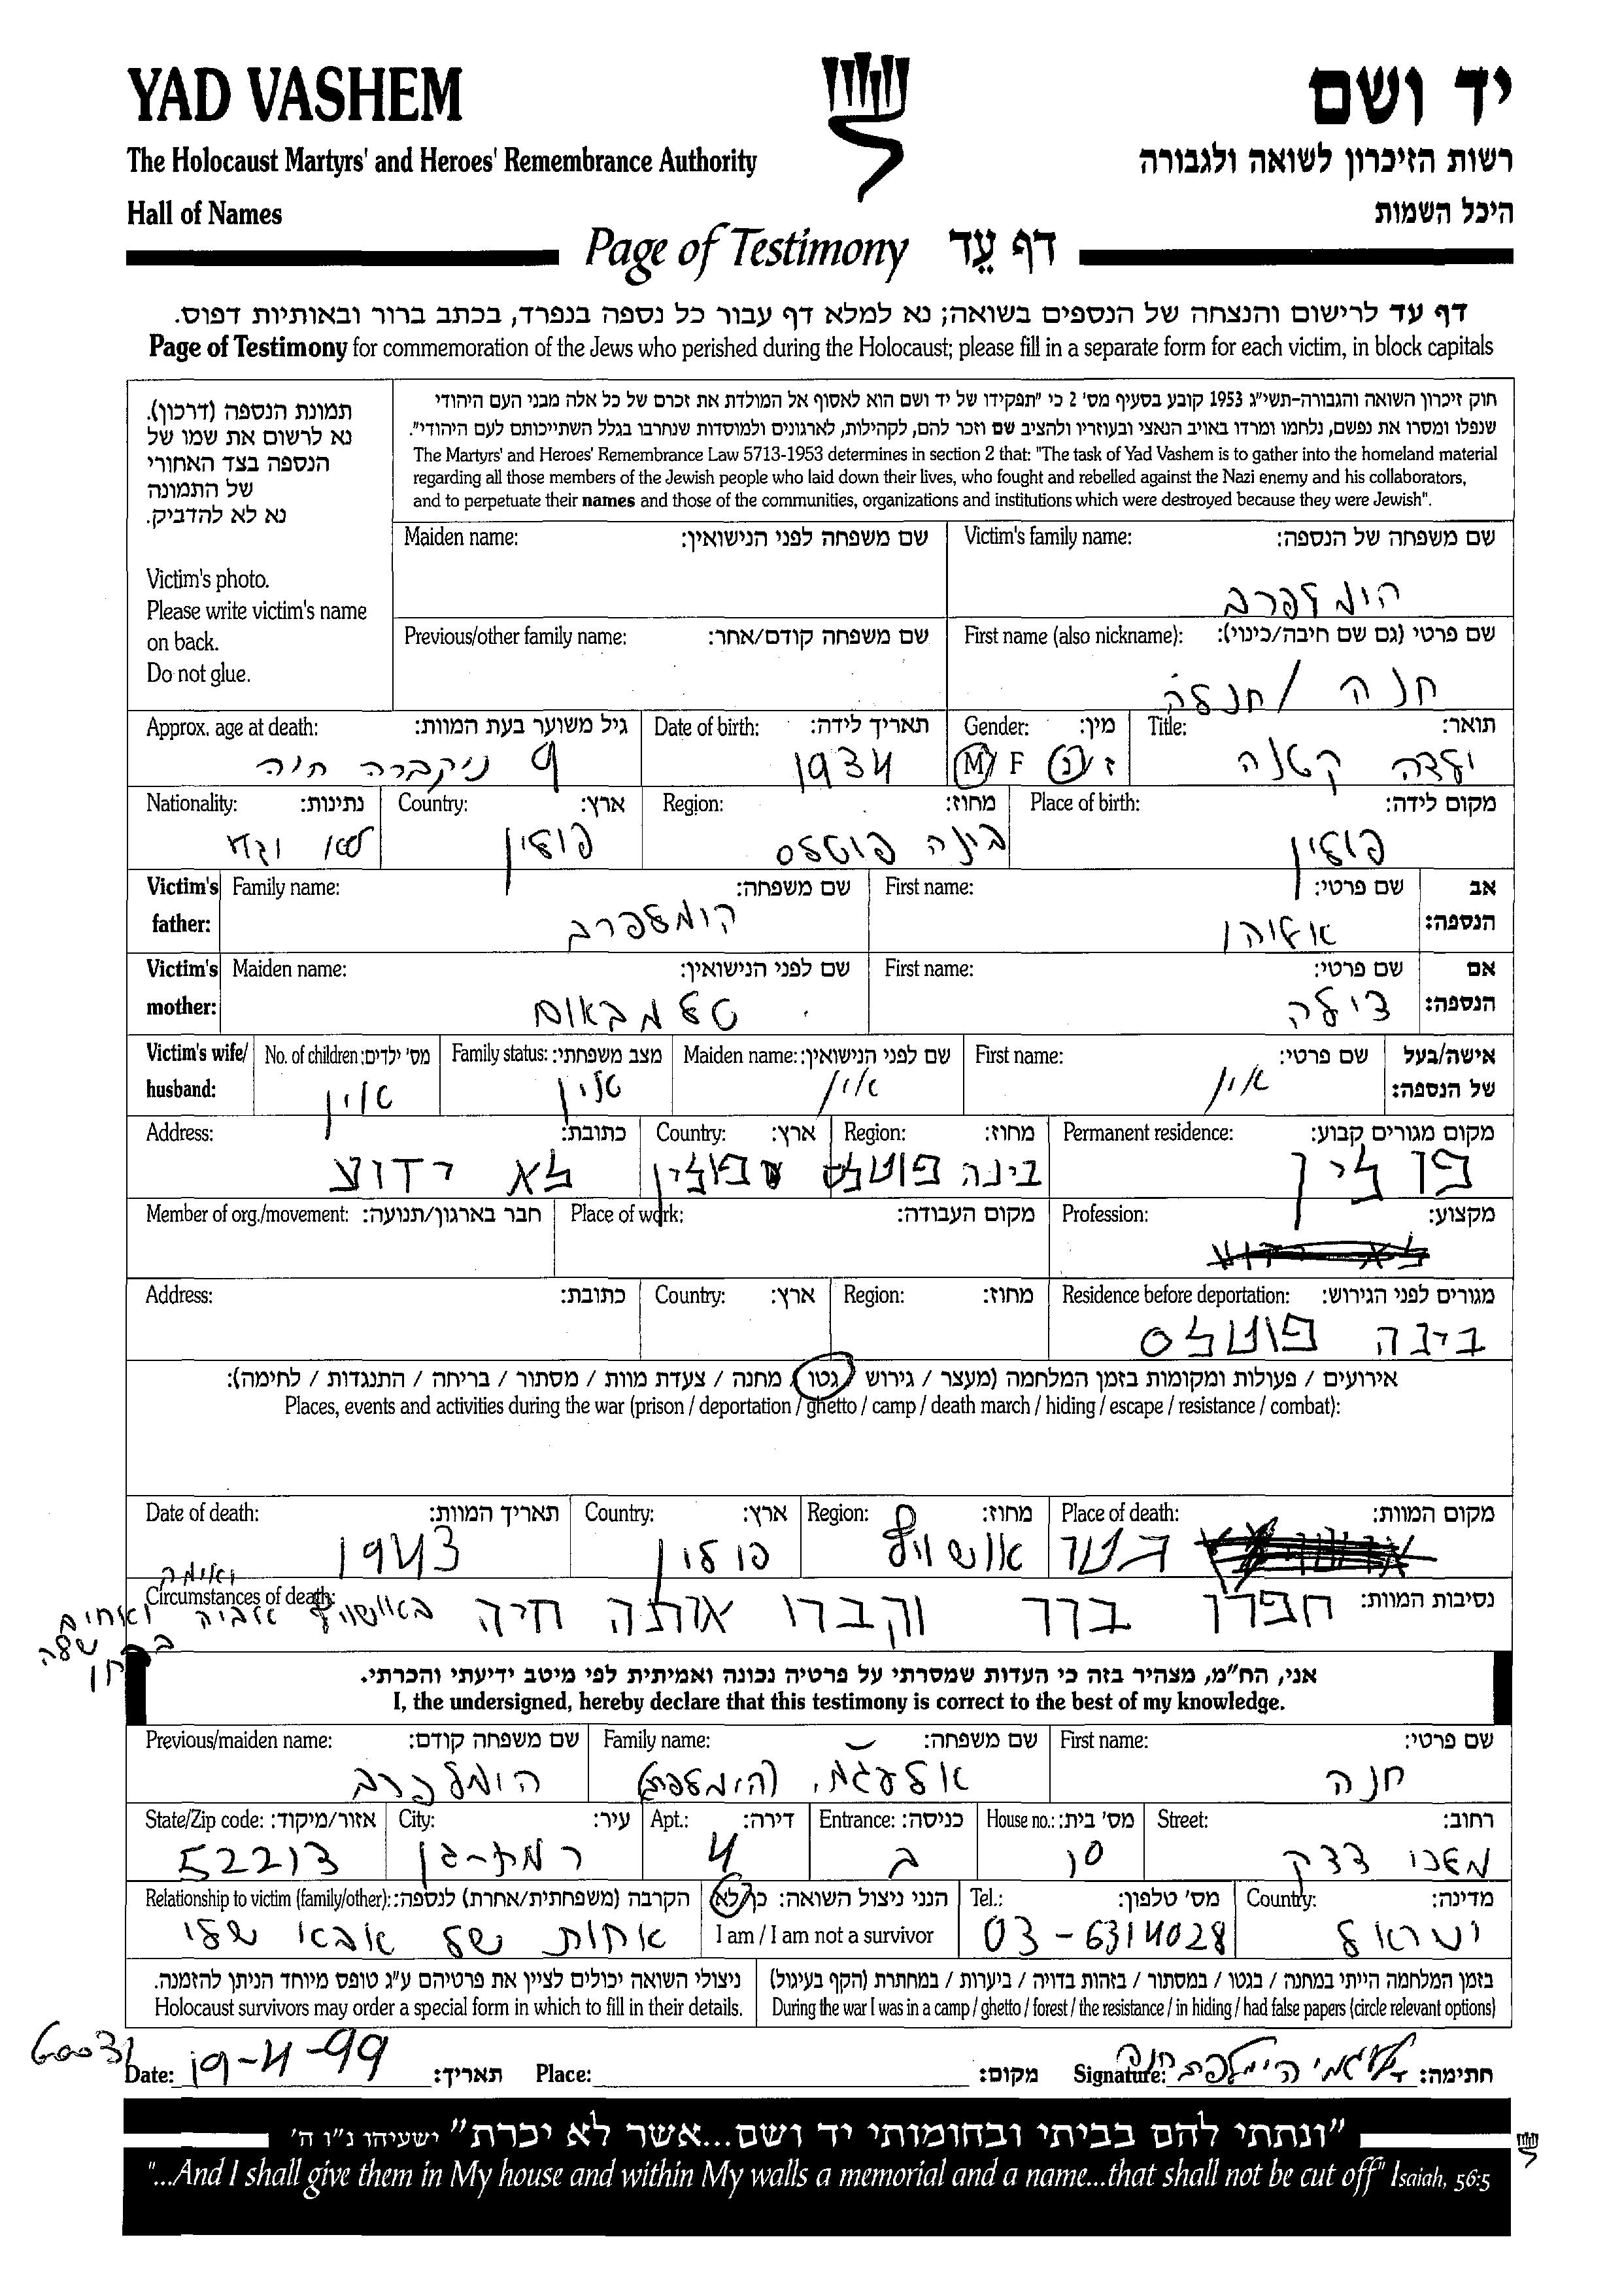 YAD VASHEM
יד ושם
The Holocaust Martyrs' and Heroes' Remembrance Authority
רשות הזיכרון לשואה ולגבורה
Hall of Names
היכל השמות
Page of Testimony דף עֵד
דף עד לרישום והנצחה של הנספים בשואה; נא למלא דף עבור כל נספה בנפרד, בכתב ברור ובאותיות דפוס.
Page of Testimony for commemoration of the Jews who perished during the Holocaust; please fill in a separate form for each victim, in block capitals
תמונת הנספה (דרכון).
נא לרשום את שמו של
הנספה בצד האחורי
של התמונה
נא לא להדביק.
Victim's photo.
Please write victim's name
on back.
Do not glue.
חוק זיכרון השואה והגבורה-תשי"ג 1953 קובע בסעיף מס' 2 כי "תפקידו של יד ושם הוא לאסוף אל המולדת את זכרם של כל אלה מבני העם היהודי
שנפלו ומסרו את נפשם, נלחמו ומרדו באויב הנאצי ובעוזריו ולהציב שם וזכר להם, לקהילות, לארגונים ולמוסדות שנחרבו בגלל השתייכותם לעם היהודי".
The Martyrs' and Heroes' Remembrance Law 5713-1953 determines in section 2 that: "The task of Yad Vashem is to gather into the homeland material
regarding all those members of the Jewish people who laid down their lives, who fought and rebelled against the Nazi enemy and his collaborators,
and to perpetuate their names and those of the communities, organizations and institutions which were destroyed because they were Jewish".
Victim's family name: שם משפחה של הנספה:
הימלפרב
Maiden name: שם משפחה לפני הנישואין:
First name (also nickname): שם פרטי (גם שם חיבה/כינוי):
חנה / חנלה
Previous/other family name: שם משפחה קודם/אחר:
Title: תואר:
ילדה קטנה
Gender: מין:
M F ז / נ
Date of birth: תאריך לידה:
1934
Approx. age at death: גיל משוער בעת המוות:
9 ניקברה חיה
Place of birth: מקום לידה:
פולין
Region: מחוז:
בינה פוטלס
Country: ארץ:
פולין
Nationality: נתינות:
Victim's father: אב הנספה:
First name: שם פרטי:
אליהו
Family name: שם משפחה:
הימלפרב
Victim's mother: אם הנספה:
First name: שם פרטי:
צילה
Maiden name: שם לפני הנישואין:
טלמבאום
Victim's wife/husband: אישה/בעל של הנספה:
First name: שם פרטי:
אין
Maiden name: שם לפני הנישואין:
אין
Family status: מצב משפחתי:
אין
No. of children: מס' ילדים:
אין
Permanent residence: מקום מגורים קבוע:
פולין
Region: מחוז:
בינה פוטלס
Country: ארץ:
פולין
Address: כתובת:
לא ידוע
Profession: מקצוע:
Place of work: מקום העבודה:
Member of org./movement: חבר בארגון/תנועה:
Residence before deportation: מגורים לפני הגירוש:
בינה פוטלס
Region: מחוז:
Country: ארץ:
Address: כתובת:
אירועים / פעולות ומקומות בזמן המלחמה (מעצר / גירוש / גטו / מחנה / צעדת מוות / מסתור / בריחה / התנגדות / לחימה):
Places, events and activities during the war (prison / deportation / ghetto / camp / death march / hiding / escape / resistance / combat):
Place of death: מקום המוות:
Region: מחוז:
אושוויץ
Country: ארץ:
פולין
Date of death: תאריך המוות:
1943
Circumstances of death: נסיבות המוות:
חפרו בור וקברו אותה חיה באושוויץ אביה ואימה ואחים שלה
אני, הח"מ, מצהיר בזה כי העדות שמסרתי על פרטיה נכונה ואמיתית לפי מיטב ידיעתי והכרתי.
I, the undersigned, hereby declare that this testimony is correct to the best of my knowledge.
First name: שם פרטי:
חנה
Family name: שם משפחה:
Previous/maiden name: שם משפחה קודם:
הימלפרב
Street: רחוב:
מלכי צדק
House no.: מס' בית:
10
Entrance: כניסה:
ב
Apt.: דירה:
4
City: עיר:
רמת-גן
State/Zip code: אזור/מיקוד:
52213
Country: מדינה:
ישראל
Tel.: מס' טלפון:
03-6314028
הנני ניצול השואה: כן/לא
I am / I am not a survivor
Relationship to victim (family/other): הקרבה (משפחתית/אחרת) לנספה:
אחות של אבא שלי
בזמן המלחמה הייתי במחנה / בגטו / במסתור / בזהות בדויה / ביערות / במחתרת (הקף בעיגול)
During the war I was in a camp / ghetto / forest / the resistance / in hiding / had false papers (circle relevant options)
ניצולי השואה יכולים לציין את פרטיהם ע"ג טופס מיוחד הניתן להזמנה.
Holocaust survivors may order a special form in which to fill in their details.
Date: 19-4-99 תאריך:
Place: מקום:
Signature: חתימה:
"ונתתי להם בביתי ובחומותי יד ושם...אשר לא יכרת" ישעיהו נ"ו ה'
"...And I shall give them in My house and within My walls a memorial and a name...that shall not be cut off" Isaiah, 56:5